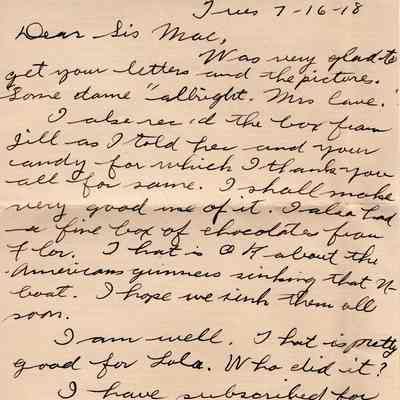 Tues 7-16-18
Dear Sis Mae,
Was very glad to
get your letters and the pictures.
"Some dame" allright. Mrs Cave.
I also rec'd the box from
Jill as I told her and your
candy for which I thank you
all for same. I shall make
very good use of it. I also had
a fine box of chocolates from
Flor. That is O K about the
Americans gunners sinking that U-
boat. I hope we sink them all
soon.
I am well. That is pretty
good for Lola. Who did it?
I have subscribed for